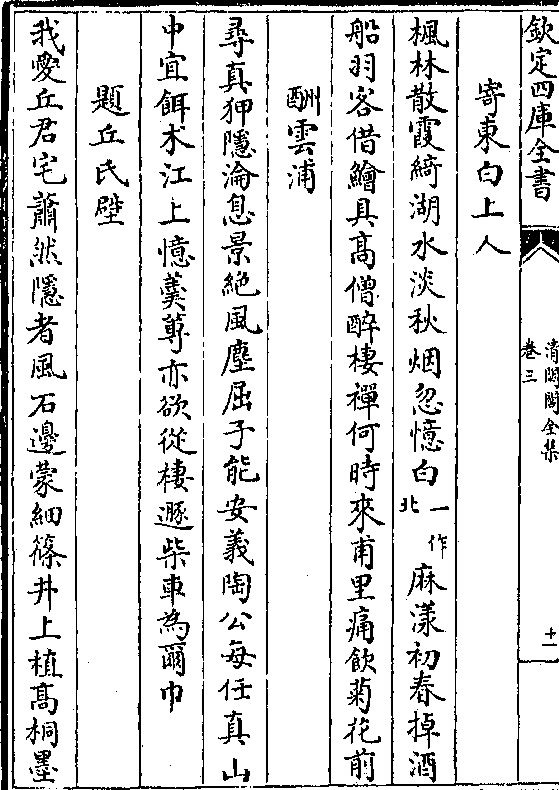 欽定四庫全書
清閟閣全集
卷三
十一
寄東白上人
楓林散霞綺湖水淡秋烟忽憶白一作北麻漾初春掉酒
船羽客借鱠具髙僧醉棲禪何時來甫里痛飲菊花前
酬雲浦
尋真狎隱淪息景絶風塵屈子能安義陶公每任真山
中宜餌术江上憶羮蓴亦欲從棲遯柴車為爾巾
題丘氏壁
我愛丘君宅蕭然隱者風石邊蒙細篠井上植髙桐墨